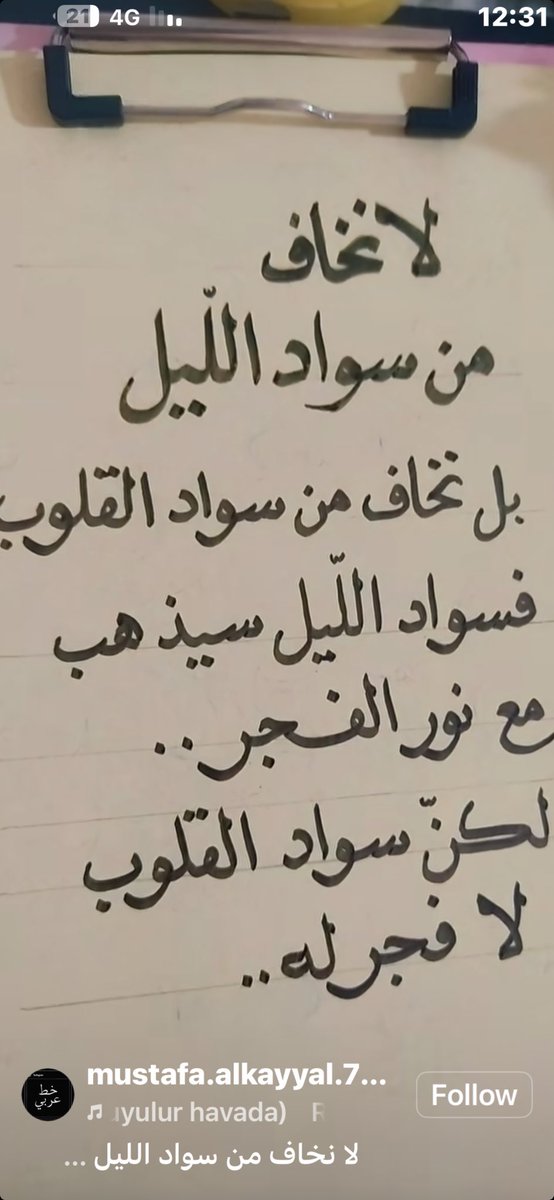 21 4G 12:31
لا نخاف
من سواد اللّيل
بل نخاف من سواد القلوب
فسواد اللّيل سيذهب
مع نور الفجر..
لكنّ سواد القلوب
لا فجر له..
خط عربي
mustafa.alkayyal.7...
Follow
yulur havada) R
لا نخاف من سواد الليل ...